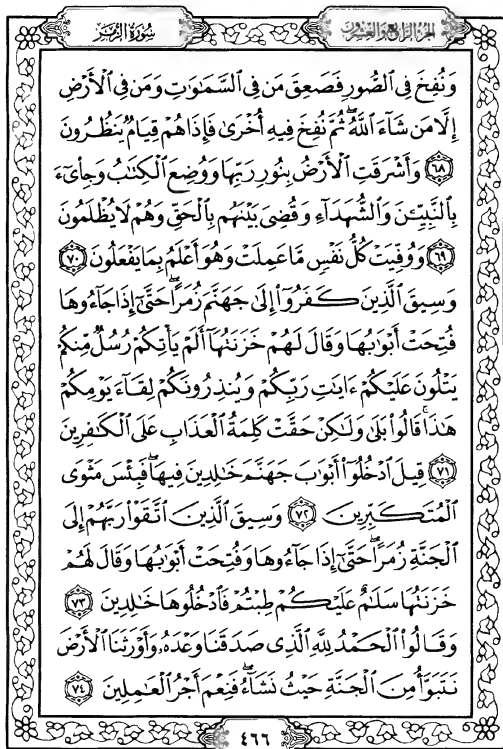 سُورَةُ الزُّمَرِ الجُزْءُ الرَّابِعُ وَالعِشْرُونَ
وَنُفِخَ فِى ٱلصُّورِ فَصَعِقَ مَن فِى ٱلسَّمَٰوَٰتِ وَمَن فِى ٱلْأَرْضِ
إِلَّا مَن شَآءَ ٱللَّهُ ۖ ثُمَّ نُفِخَ فِيهِ أُخْرَىٰ فَإِذَا هُمْ قِيَامٌ يَنظُرُونَ
٦٨ وَأَشْرَقَتِ ٱلْأَرْضُ بِنُورِ رَبِّهَا وَوُضِعَ ٱلْكِتَٰبُ وَجِا۟ىٓءَ
بِٱلنَّبِيِّـۧنَ وَٱلشُّهَدَآءِ وَقُضِىَ بَيْنَهُم بِٱلْحَقِّ وَهُمْ لَا يُظْلَمُونَ
٦٩ وَوُفِّيَتْ كُلُّ نَفْسٍ مَّا عَمِلَتْ وَهُوَ أَعْلَمُ بِمَا يَفْعَلُونَ ٧٠
وَسِيقَ ٱلَّذِينَ كَفَرُوٓا۟ إِلَىٰ جَهَنَّمَ زُمَرًا ۖ حَتَّىٰٓ إِذَا جَآءُوهَا
فُتِحَتْ أَبْوَٰبُهَا وَقَالَ لَهُمْ خَزَنَتُهَآ أَلَمْ يَأْتِكُمْ رُسُلٌ مِّنكُمْ
يَتْلُونَ عَلَيْكُمْ ءَايَٰتِ رَبِّكُمْ وَيُنذِرُونَكُمْ لِقَآءَ يَوْمِكُمْ
هَٰذَا ۚ قَالُوا۟ بَلَىٰ وَلَٰكِنْ حَقَّتْ كَلِمَةُ ٱلْعَذَابِ عَلَى ٱلْكَٰفِرِينَ
٧١ قِيلَ ٱدْخُلُوٓا۟ أَبْوَٰبَ جَهَنَّمَ خَٰلِدِينَ فِيهَا ۖ فَبِئْسَ مَثْوَى
ٱلْمُتَكَبِّرِينَ ٧٢ وَسِيقَ ٱلَّذِينَ ٱتَّقَوْا۟ رَبَّهُمْ إِلَى
ٱلْجَنَّةِ زُمَرًا ۖ حَتَّىٰٓ إِذَا جَآءُوهَا وَفُتِحَتْ أَبْوَٰبُهَا وَقَالَ لَهُمْ
خَزَنَتُهَا سَلَٰمٌ عَلَيْكُمْ طِبْتُمْ فَٱدْخُلُوهَا خَٰلِدِينَ ٧٣
وَقَالُوا۟ ٱلْحَمْدُ لِلَّهِ ٱلَّذِى صَدَقَنَا وَعْدَهُۥ وَأَوْرَثَنَا ٱلْأَرْضَ
نَتَبَوَّأُ مِنَ ٱلْجَنَّةِ حَيْثُ نَشَآءُ ۖ فَنِعْمَ أَجْرُ ٱلْعَٰمِلِينَ ٧٤
٤٦٦